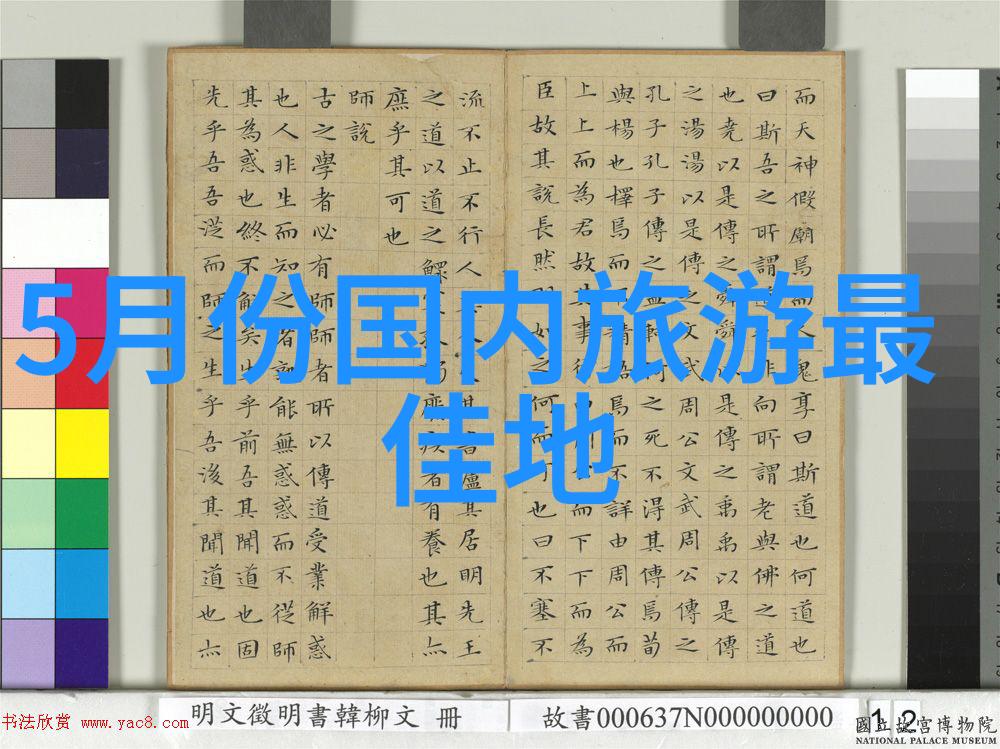 5月份国内旅游最
佳地
而天神假廟焉而人鬼享曰斯道也何道也
曰斯吾之所謂非向所謂老與佛之道
也堯以是傳之舜舜以是傳之禹禹以是傳
之湯湯以是傳之文武周公文武周公傳之
孔子孔子傳之孟軻軻之死不得其傳焉荀
與楊也擇焉而精語焉而不詳由周公而
上上而為君故其事行而下下而為
臣故其說長然則如之何而可也曰不塞不
流不止不行人其人其書廬其居明先王
之道以道之鰥廢疾者有養也其亦
庶乎其可也
師說
古之學者必有師師者所以傳道受業解惑
也人非生而知之者孰能無惑惑而不從師
其為惑也終不解矣生乎前吾其聞道也固
先乎吾吾從而師之生乎吾後其聞道也亦
明文徵明書韓柳文 冊
故書000637N000000000
12
书法欣赏 www.yac8.com
國立故宮博物院
NATIONAL PALACE MUSEUM